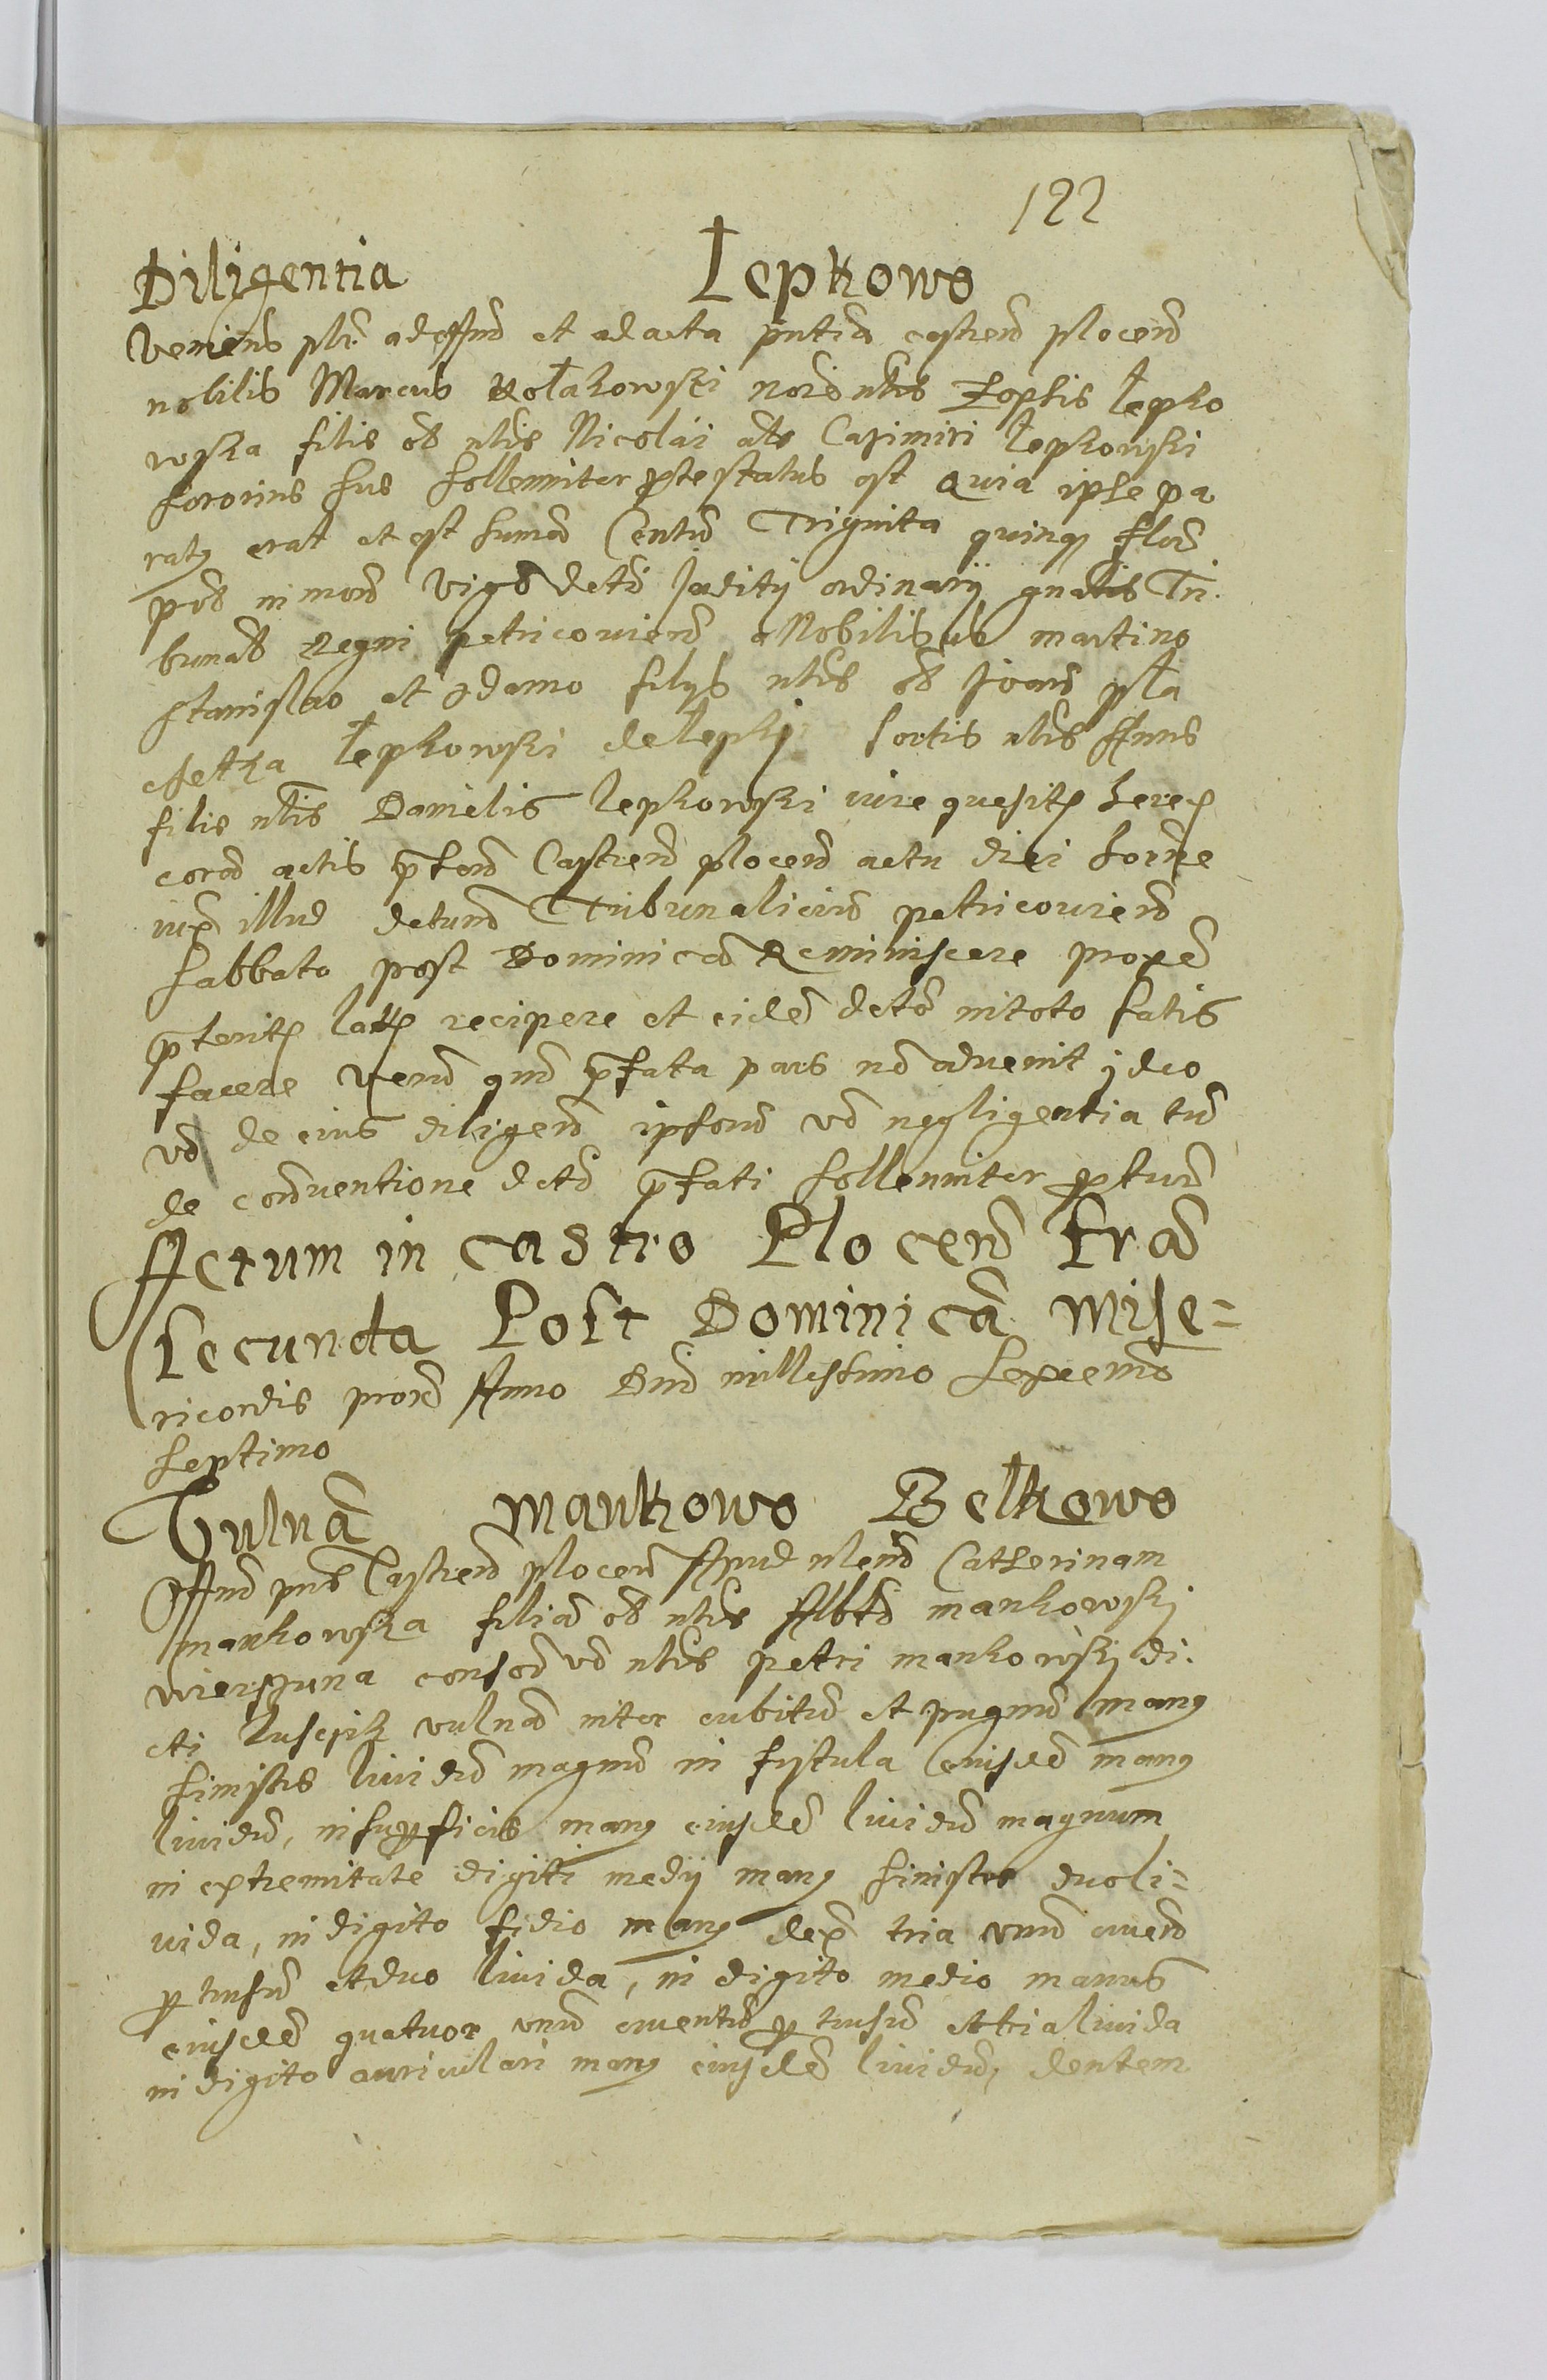 122
Diligentia Łepkowo
Veniens pltr ad Offm et ad acta pntia castren plocen
nobilis Marcus Kołakowski noie nblis Zophis łepko
wska filis ob nblis Nicolai als Casimiri łepkowski
sororius sus sollemniter ptestatus est Quia ipse pa
ratq erat et est sumam Centum Triginta quinq flor
pol in mon vigo decti Juditij ordinarij gnalis Tri
bunal Regni petricovien a Nobilibus martino
stanislao et Adamo filijs nblis ob Joan pła
chetka łepkowski de łepki sortis nblis Anns
filis nblis Danielis łepkowski iure quesitq hereq
coram actis pfon Castren plocen actu diei hodne
iux illud detum Tribunaliciu petricovien
sabbato post Dominicam Reminiscere proxe
pteritq latq recipere et eidem deto in toto satis
facere verum qm pfata pars non advenit ideo
vd de eius diligen ipsoru vd negligentia tum
de conventione deti pfati sollemniter ptum
Actum in castro Plocen Fria
secunda Post Dominica Mise=
ricordis prox Anno Dni millesimo sexcenmo
septimo
Vulna mankowo Bełkowo
Offm pns Castren plocen Apud nblem Catherinam
mankowska filiam ob nblis Albti mankowskj
wierzguna consor vd nblis petri mankowskj di
cti Suscepit vulna inter cubitum et pugnum manq
sinistis lividum magnum in fistula eiusdem manq
lividum, in supficis manq eiusdem lividum magnum
in extremitate digiti medij manq sinistis duo li=
vida, in digito fidio manq dex tria unum cruen
ptusum et duo livida, in digito medio manus
eiusdem quatuor unum cruentum ptusum et tria livida
in digito auriculari manq eiusdem lividum, dentem